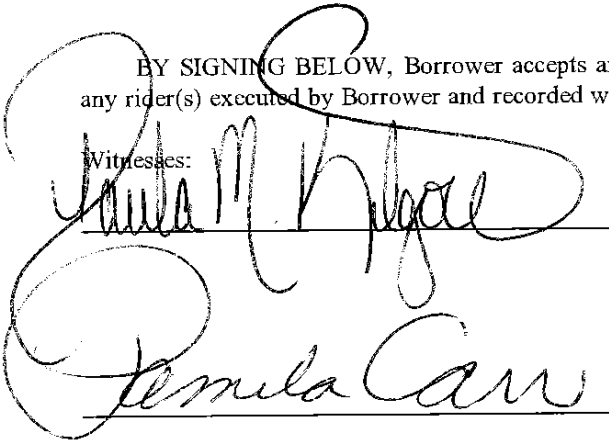 BY SIGNING BELOW, Borrower accepts a
any rider(s) executed by Borrower and recorded w
Witnesses:
Paula M. Kilgore
Pamela Carr